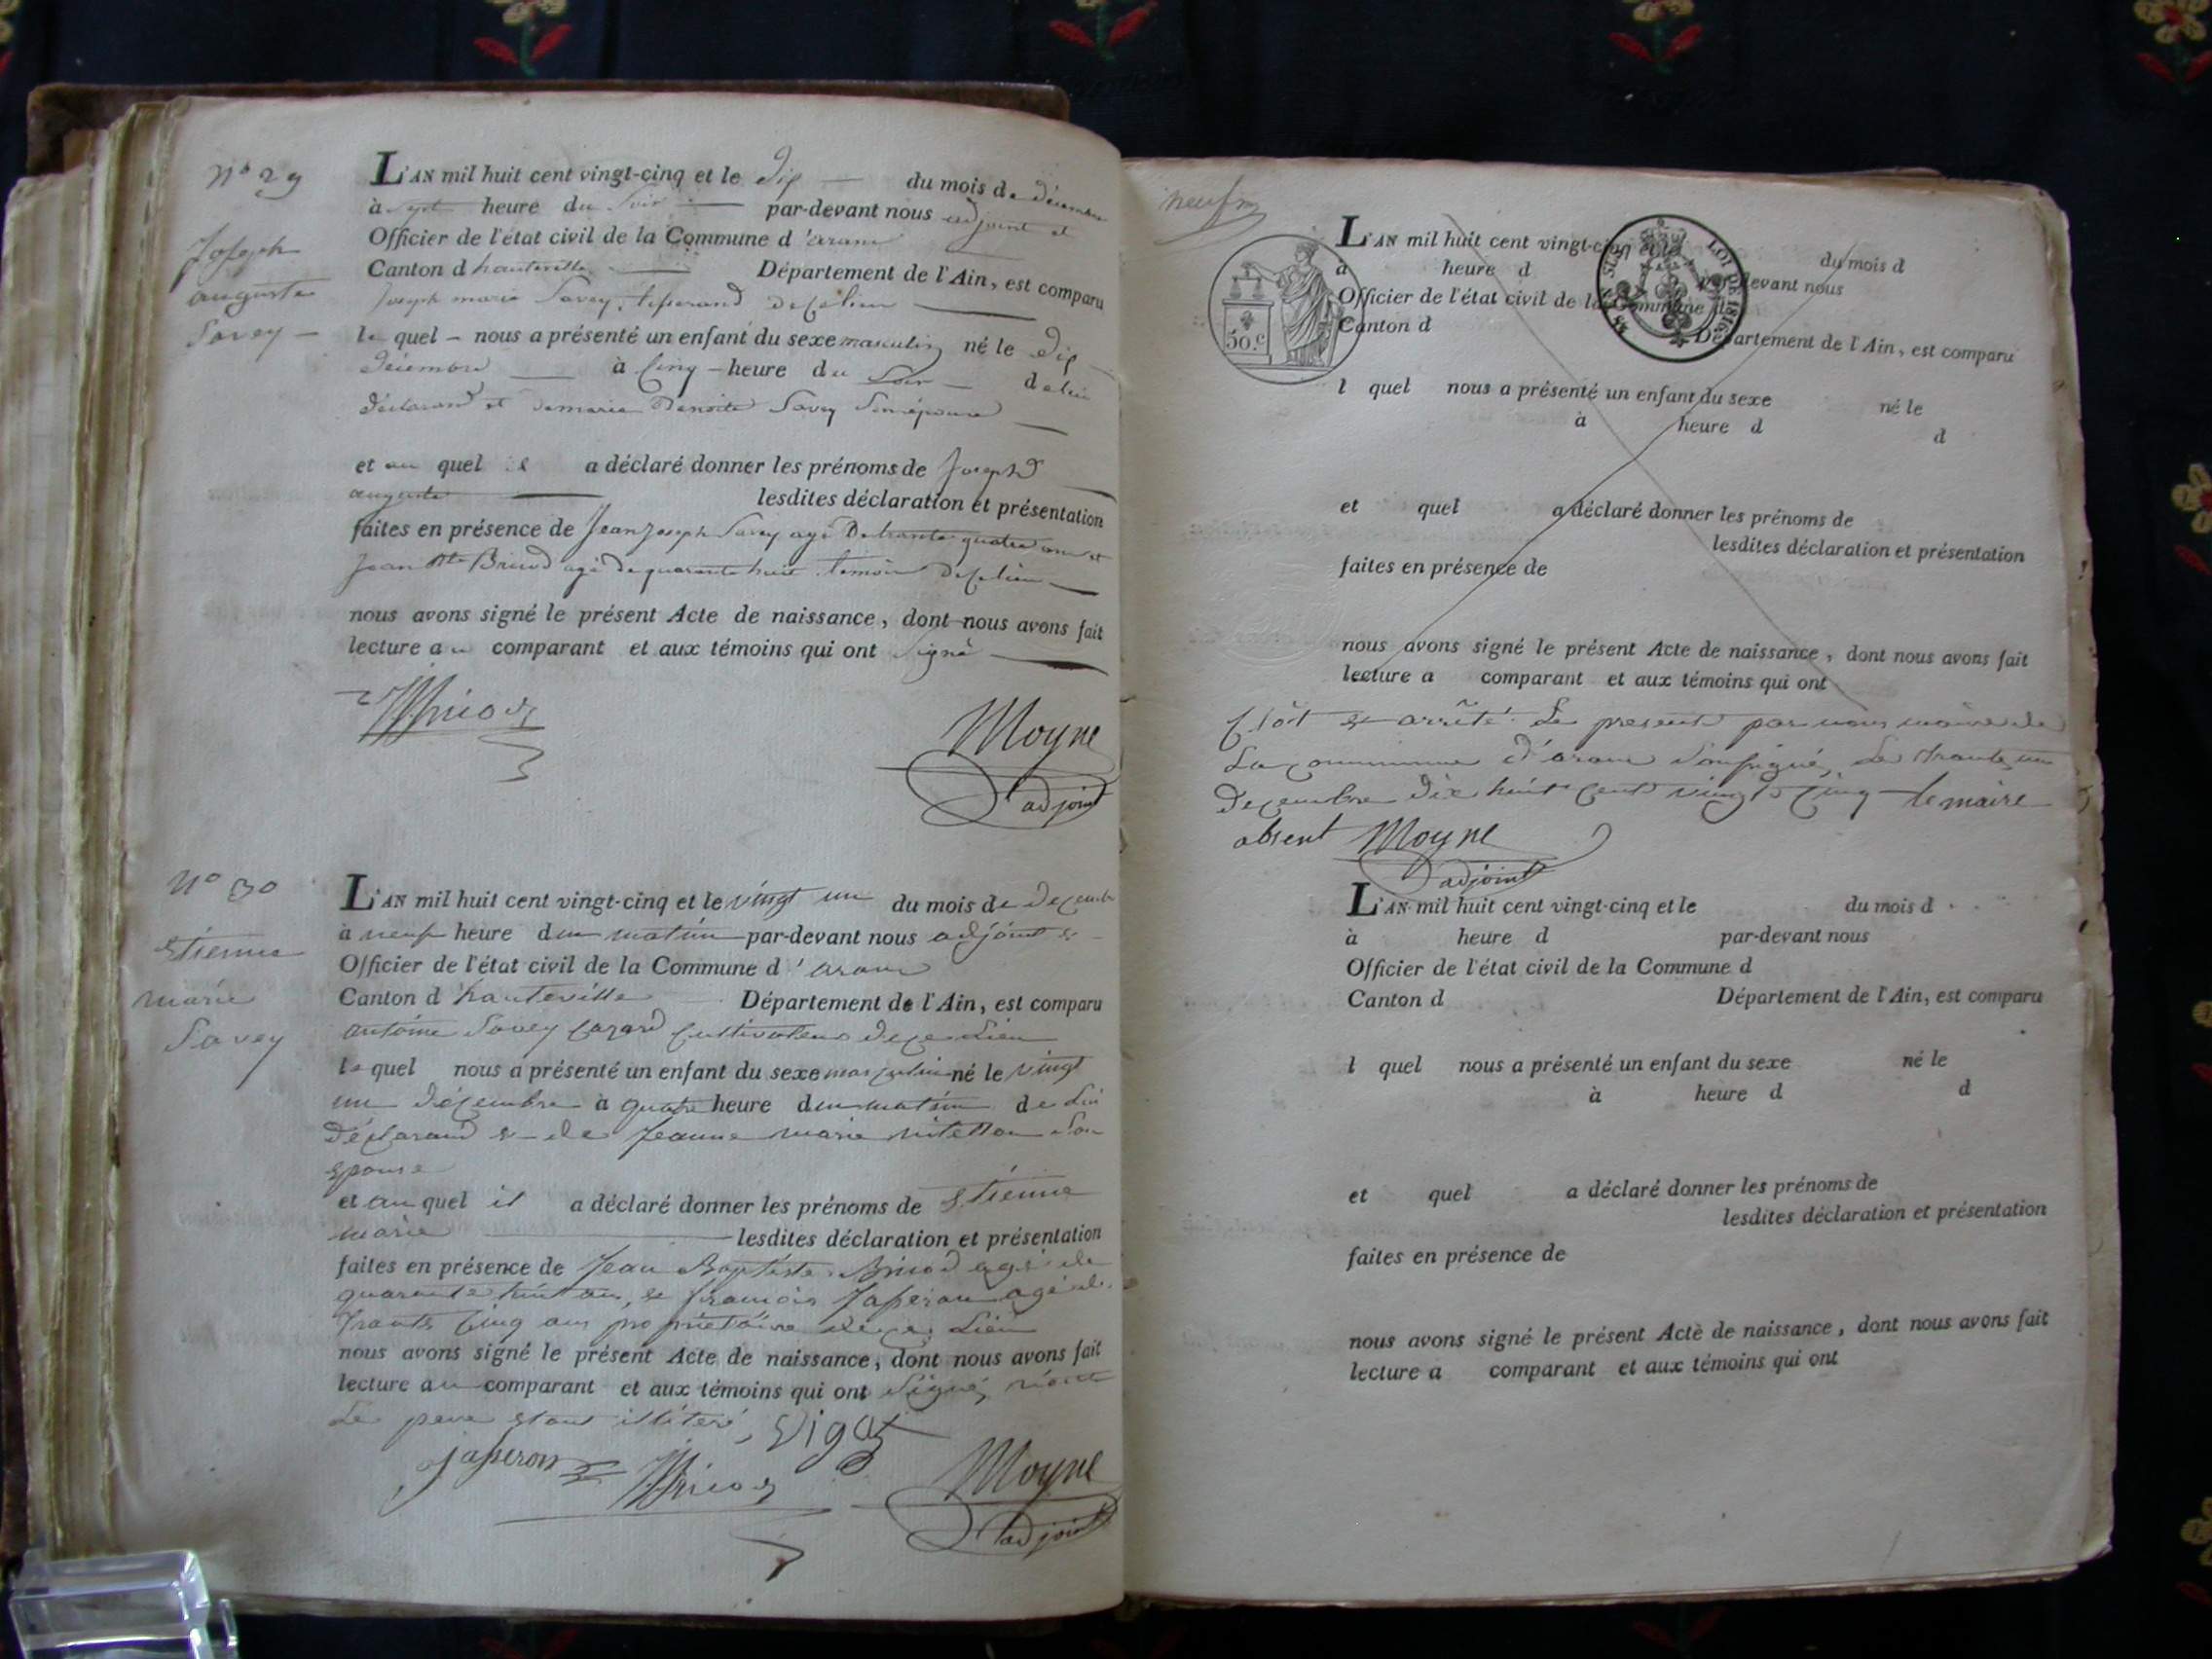 N° 29
Joseph
auguste
Savey
L'AN mil huit cent vingt-cinq et le dix du mois de décembre
à sept heure du soir par-devant nous adjoint et
Officier de l'état civil de la Commune d'aranc
Canton d'hauteville Département de l'Ain, est comparu
Joseph marie Savey, tisserand de ce lieu
le quel nous a présenté un enfant du sexe masculin né le dix
décembre à cinq heure du soir de lui
déclarant et de marie Benoite Savey son épouse
et au quel il a déclaré donner les prénoms de Joseph
auguste lesdites déclaration et présentation
faites en présence de Jean Joseph Savey agé de trante quatre ans et
Jean Bte Bricod agé de quarante huit témoin de ce lieu
nous avons signé le présent Acte de naissance, dont nous avons fait
lecture au comparant et aux témoins qui ont signé
Bricod
Moyne
adjoint
N° 30
étienne
marie
Savey
L'AN mil huit cent vingt-cinq et le vingt un du mois de decembre
à neuf heure du matin par-devant nous adjoint et
Officier de l'état civil de la Commune d'aranc
Canton d'hauteville Département de l'Ain, est comparu
antoine Savey cultivateur de ce Lieu
le quel nous a présenté un enfant du sexe masculin né le vingt
un décembre à quatre heure du matin de Lui
déclarand et de Jeanne marie son
epouse
et au quel il a déclaré donner les prénoms de étienne
marie lesdites déclaration et présentation
faites en présence de Jean Baptiste Bricod agé de
quarante huit ans, et francois Jasseron agé de
trante cinq ans propriétaire de ce Lieu
nous avons signé le présent Acte de naissance, dont nous avons fait
lecture au comparant et aux témoins qui ont Signé, non
Le pere etant
Jasseron Bricod
Moyne
adjoint
50.c
LOI DE 1816
L'AN mil huit cent vingt-cinq et le du mois d
à heure d par-devant nous
Officier de l'état civil de la Commune d
Canton d Département de l'Ain, est comparu
l quel nous a présenté un enfant du sexe né le
à heure d d
et quel a déclaré donner les prénoms de
lesdites déclaration et présentation
faites en présence de
nous avons signé le présent Acte de naissance, dont nous avons fait
lecture a comparant et aux témoins qui ont
Clôt et arrêté Le present par nous maire de
La commune d'aranc soussigné, Le trante un
decembre dix huit cent vingt cinq le maire
absent Moyne
adjoint
L'AN mil huit cent vingt-cinq et le du mois d
à heure d par-devant nous
Officier de l'état civil de la Commune d
Canton d Département de l'Ain, est comparu
l quel nous a présenté un enfant du sexe né le
à heure d d
et quel a déclaré donner les prénoms de
lesdites déclaration et présentation
faites en présence de
nous avons signé le présent Acte de naissance, dont nous avons fait
lecture a comparant et aux témoins qui ont